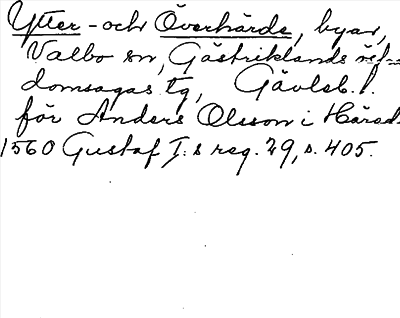 Ytter- och Överhärde, byar,
Valbo sn, Gästriklands väst-
domsagas tg, Gävleb. l.
för Anders Olsson i Härad
1560 Gustaf I:s reg. 29, s. 405.